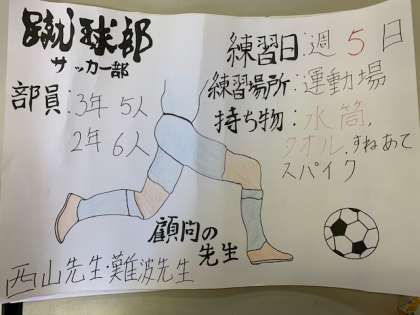 蹴球部
サッカー部
部員:3年 5人
2年 6人
練習日:週 5 日
練習場所:運動場
持ち物:水筒,
タオル,すねあて
スパイク
顧問の
先生
西山先生・難波先生